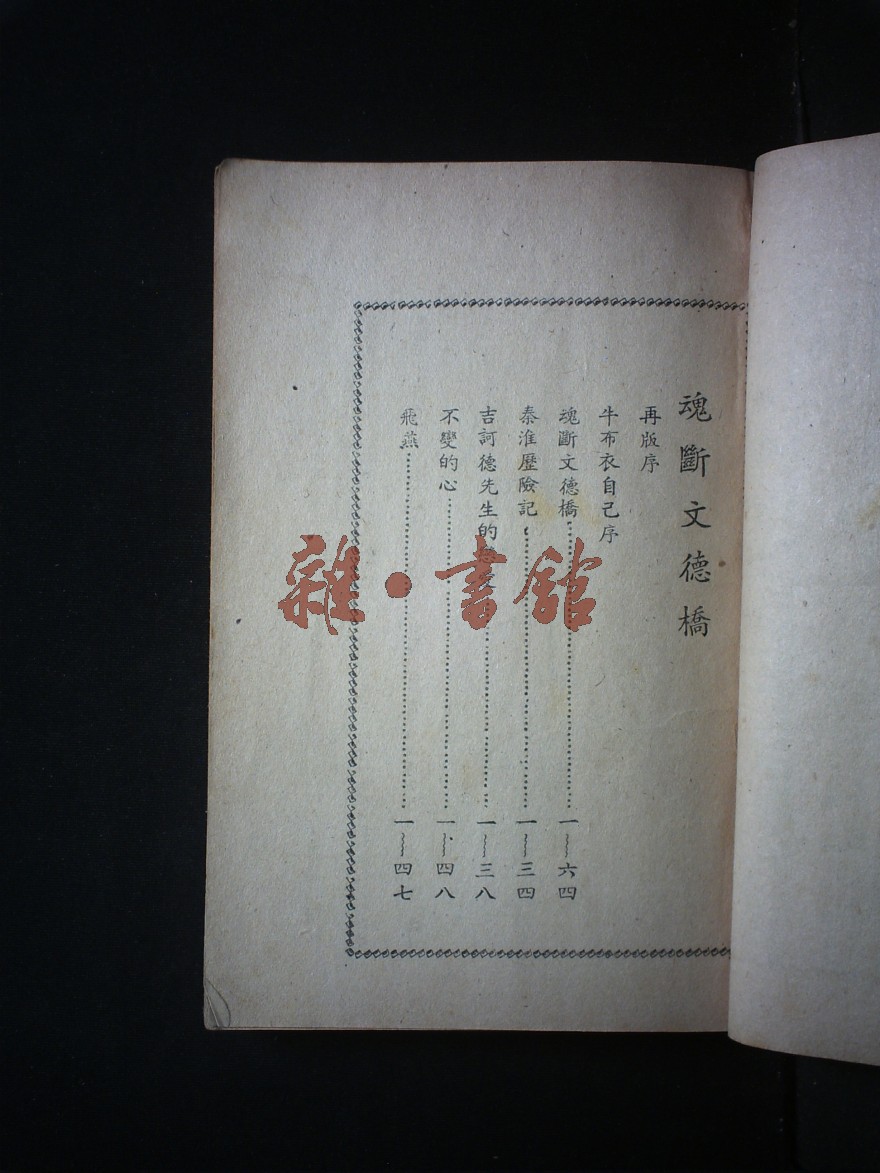 魂斷文德橋
再版序
牛布衣自己序
魂斷文德橋 一～六四
秦淮歷險記 一～三四
吉訶德先生的 一～三八
不變的心 一～四八
飛燕 一～四七
雜·書館